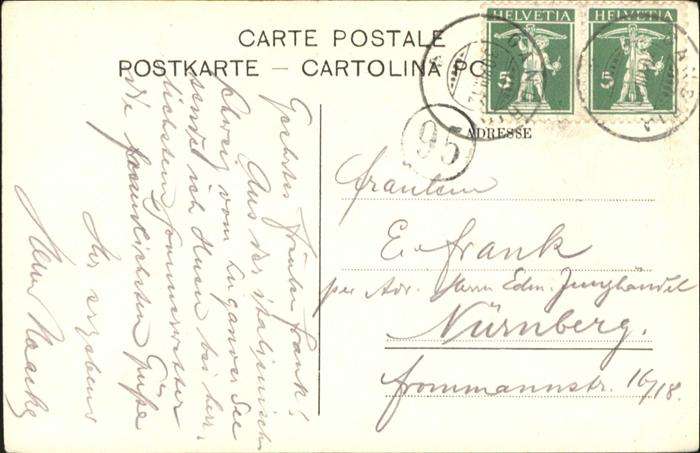 CARTE POSTALE
POSTKARTE – CARTOLINA PO
HELVETIA
5
HELVETIA
5
95
ADRESSE
Geehrtes Fräulein Frank!
Aus der italienisch
Schweiz vom Luganer See
sendet ich Ihnen bei herr-
lichstem Sommerwetter
die freundlichsten Grüße
Ihr ergebener
Fräulein
E. Frank
per Adr. Herrn Edm. Junghändel
Nürnberg.
Frommannstr. 16/18.